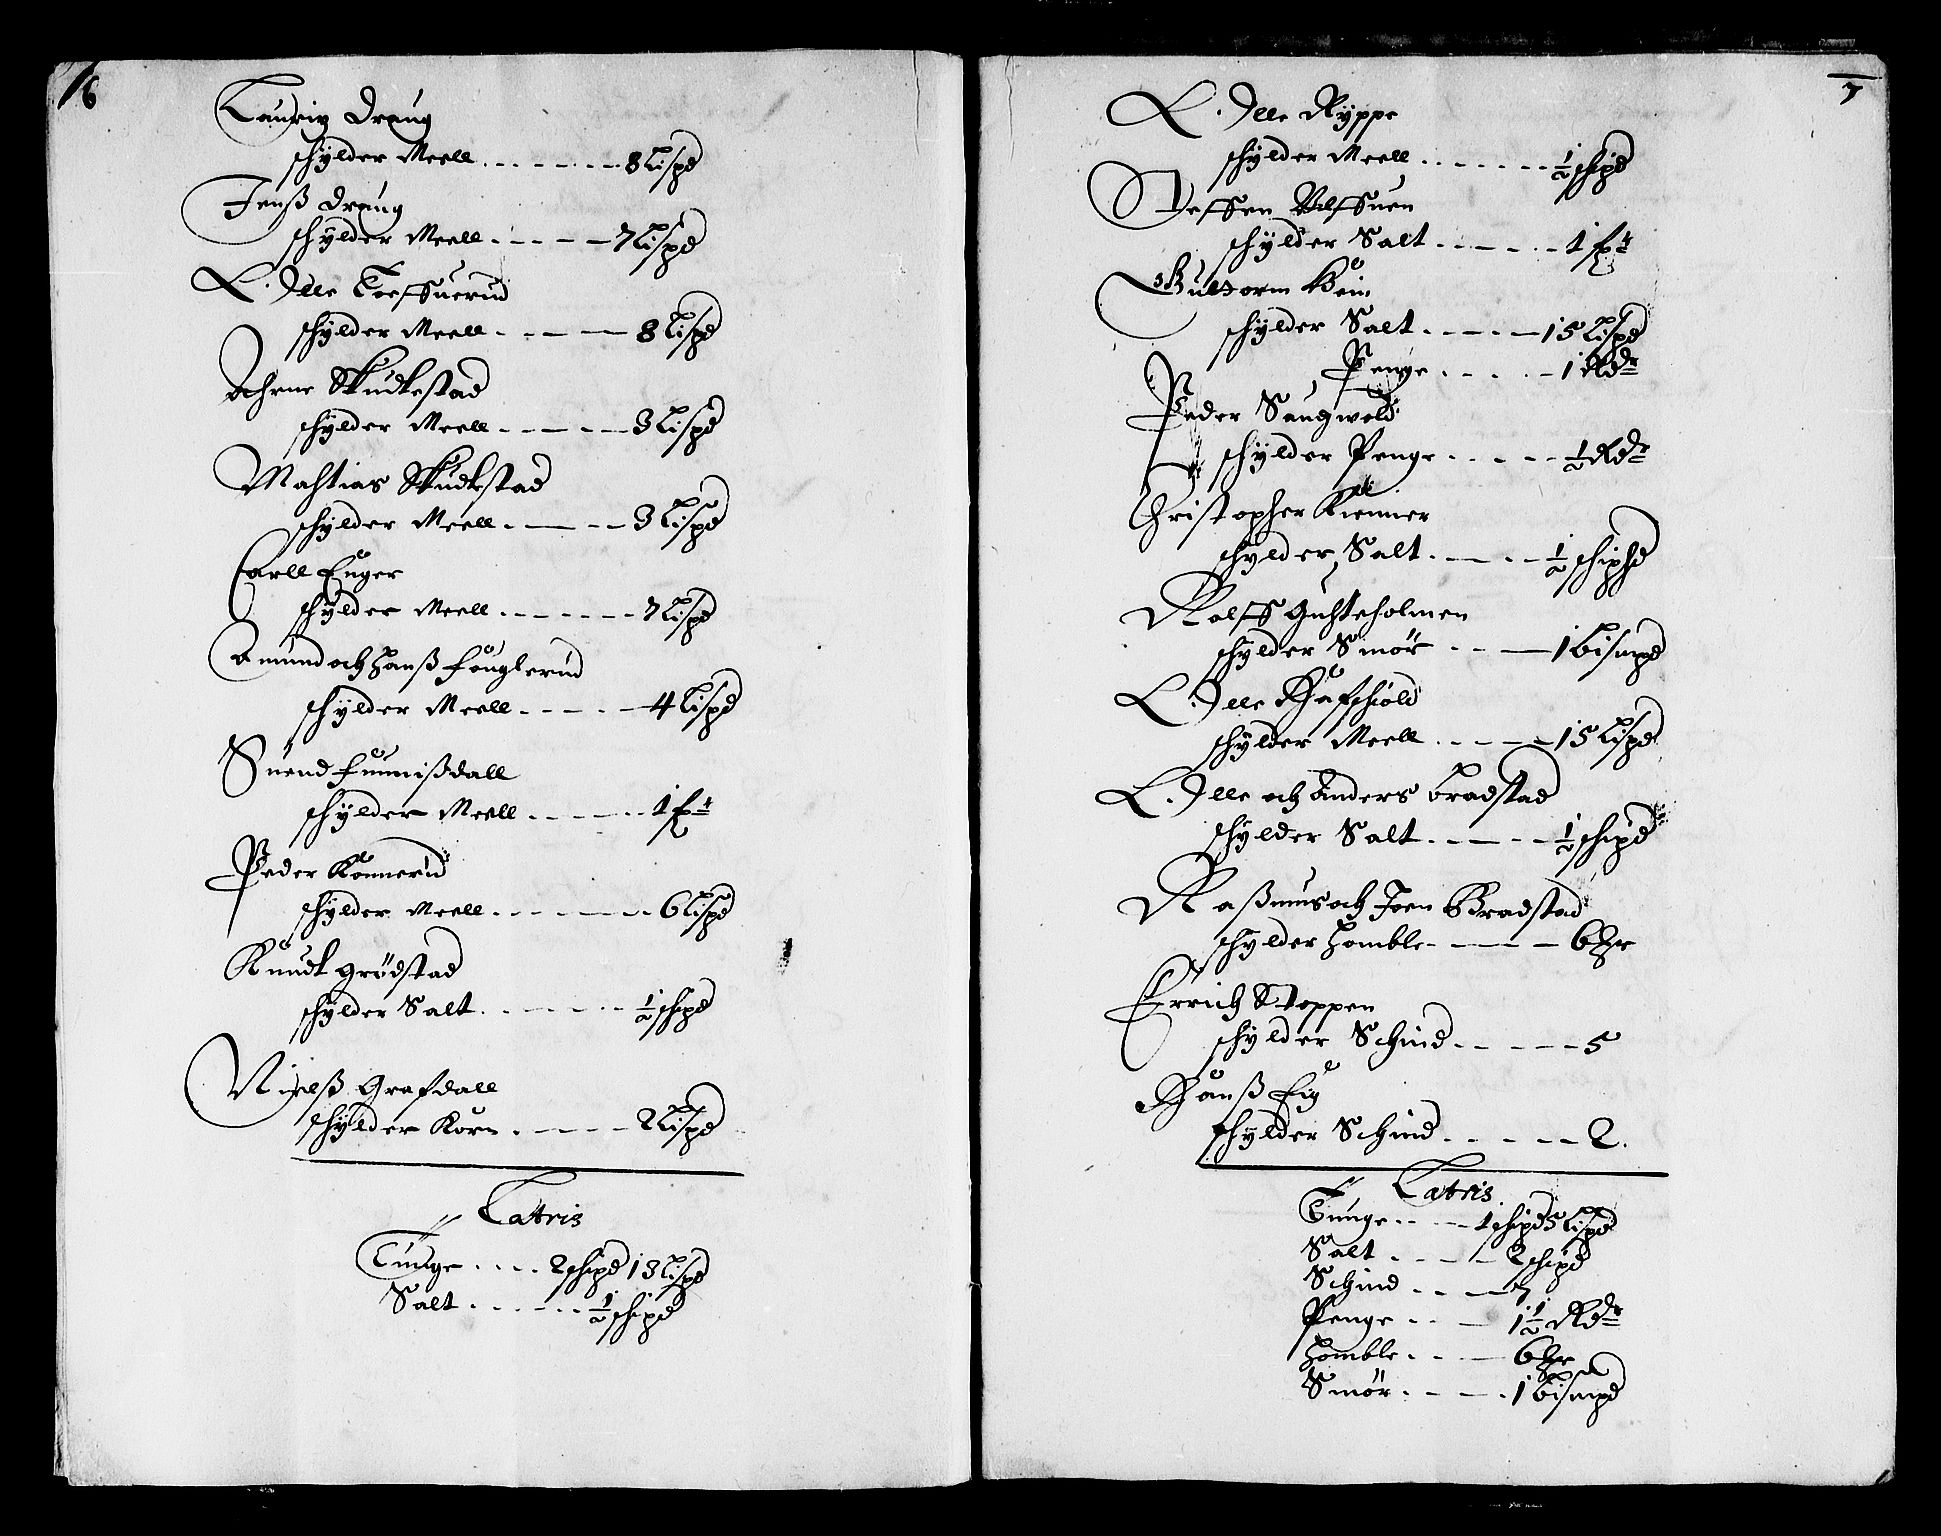 6
Lauritz Draug
schylder Meell - - - - - - 8 Lispd
Jenß Draug
schylder Meell - - - - - 7 Lispd
L. Olle Toeffuerud
schylder Meell - - - - - 8 Lispd
Ahrne Skudkestad
schylder Meell - - - - - 3 Lispd
Mahtias Skudkstad
schylder Meell - - - - - 3 Lispd
Carll Enger
schylder Meell - - - - - - 7 Lispd
Amund och Hanß Fouglerud
schylder Meell - - - - - 4 Lispd
Suend Funnißdall
schylder Meell - - - - - - 1 fr
Peder Konnerud
schylder Meell - - - - - - 6 Lispd
Knudt Grødstad
schylder Salt - - - - - - ½ schipd
Nielß Grafdall
schylder Korn - - - - - 2 Lispd
Latris
Tunge - - - - 2 schipd 13 Lispd
Salt - - - - - - ½ schipd
7
L. Olle Ryppe
schylder Meell - - - - - - ½ schipd
Steffen Ulffuen
schylder Salt - - - - - 1 fr
Gultorm Hein
schylder Salt - - - - - 15 Lispd
Penge - - - - - 1 Rdr
Peder Saugwold
schylder Penge - - - - - ½ Rdr
Christopher Kienner
schylder Salt - - - - - ½ schiphd
Rolff Guhteholmen
schylder Smør - - - 1 bismpd
L. Olle Hafschiold
schylder Meell - - - - 15 Lispd
L. Olle och Anders Bradstad
schylder Salt - - - - - ½ schipd
Raßmus och Joen Bradstad
schylder Homble - - - - 6
Errich Stoppen
schylder Schind - - - - - 5
Hanß Eig
schylder Schind - - - - - 2.
Latris
Tunge - - - - 1 schipd 5 Lispd
Salt - - - - 2 schipd
Schind - - - - 7
Penge - - - 1½ Rdr
Homble - - - - 6
Smør - - - - 1 bismpd